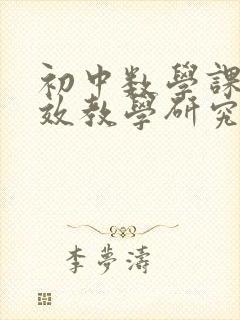 初中数學課
效教學研究
李夢濤